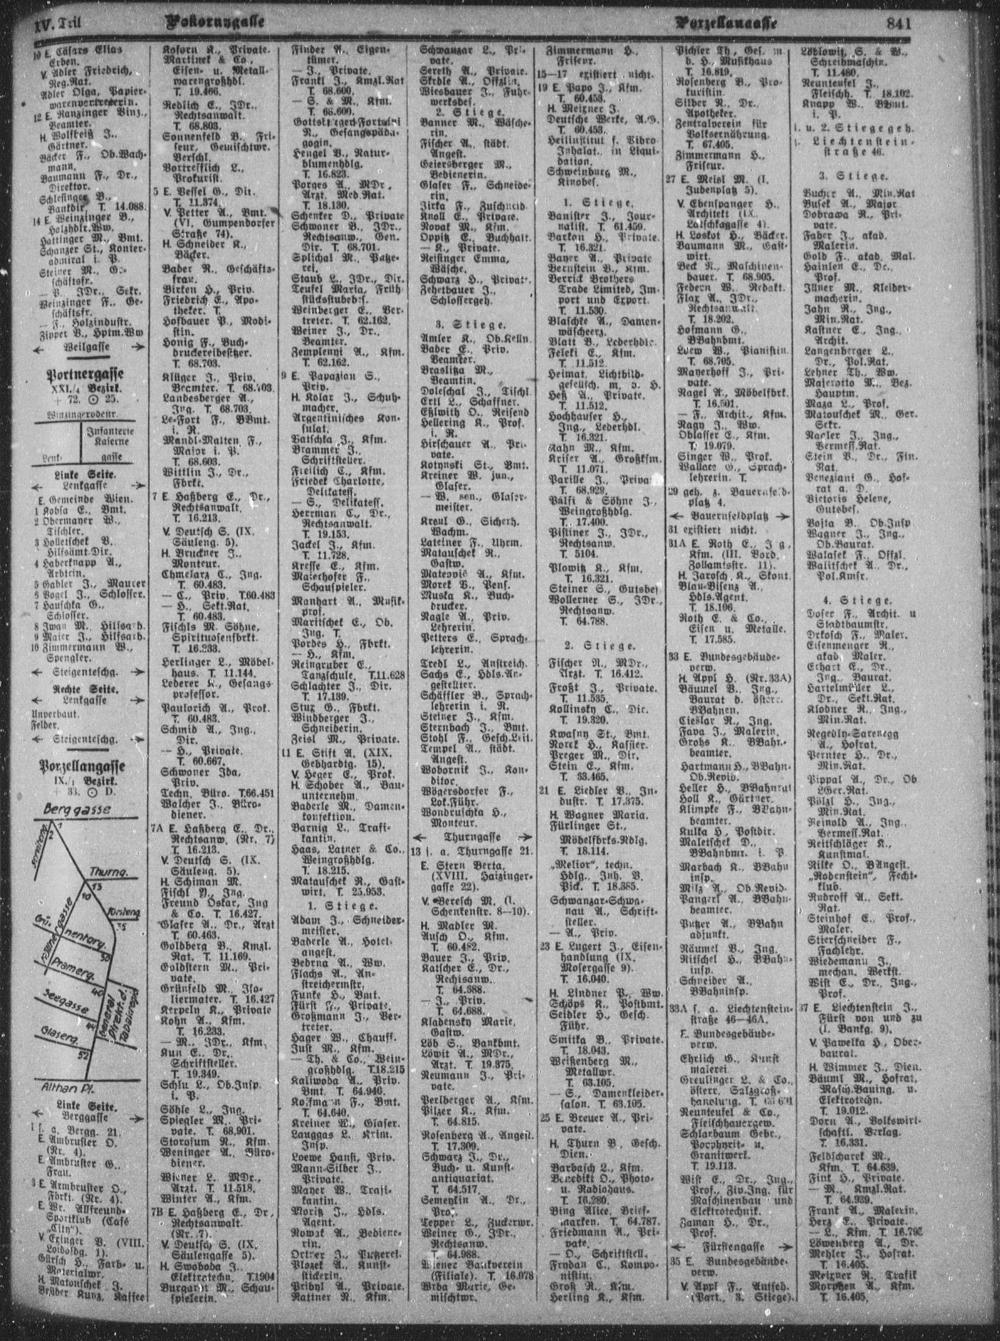 IV. Teil
Pokornygasse
Porzellangasse
841
10 E. Cäsars Elias
Erben.
V. Adler Friedrich,
Reg.Rat.
Adler Olga, Papier-
warenvertreterin.
12 E. Ranzinger Vinz.,
Beamter.
H. Wolfreiß J.,
Gärtner.
Bäcker F., Ob.Wach-
mann.
Baumann F., Dr.,
Direktor.
Schlesinger B.,
Bankdir. T. 14.088.
14 E. Weinzinger B.,
Holzhdlr.Ww.
Hattinger M., Bmt.
Schanzer St., Konter-
admiral i. P.
Steiner M., Ge-
schäftsfr.
— P., JDr., Sekr.
Weinzinger F., Ge-
schäftsfr.
— F., Holzindustr.
Zippet V., Hptm.Ww
Weilgasse
Portnergasse
XXI./1 Bezirk.
+ 72. ⊙ 25.
Infanterie
Kaserne
Lenk-
gasse
Linke Seite.
Lenkgasse
E. Gemeinde Wien.
1 Kobsa E., Bmt.
2 Obermayer W.,
Tischler.
3 Holletschek V.,
Hilfsämt.Dir.
4 Haberknapp A.,
Arbtrin.
5 Gabler J., Maurer
6 Vogel J., Schlosser.
7 Hauschka G.,
Schlosser.
8 Iwan M., Hilfsarb.
9 Maier J., Hilfsarb.
10 Zimmermann W.,
Spengler.
Steigenteschg.
Rechte Seite.
Lenkgasse
Unverbaut.
Felder.
Steigenteschg.
Porzellangasse
IX./1 Bezirk.
+ 33. ⊙ D.
Berggasse
Thurng.
Pramerg.
Seegasse
Glaserg.
Althan Pl.
Linke Seite.
Berggasse
1 s. a. Bergg. 21.
E. Ambruster O.
(Nr. 4).
E. Ambruster G.,
Frau.
3 E. Armbruster O.,
Fbrkt. (Nr. 4).
Sportklub (Café
„City“).
V. Eringer B. (VIII.
Loidoldg. 1).
Gürsch H., Farb- u.
Materialwr.
H. Matouschek J.
Kosorn K., Private.
Martinek & Co.,
Eisen- u. Metall-
warengroßhdl.
T. 19.466.
Redlich E., JDr.,
Rechtsanwalt.
T. 68.803.
Sonnenfeld B., Fri-
seur, Gerüchtswr.
Verschl.
Vortrefflich L.,
Prokurist.
5 E. Bessel G., Dir.
T. 11.374.
V. Petter A., Bmt.
(VI, Gumpendorfer
Straße 74).
H. Schneider K.,
Bäcker.
Bader R., Geschäfts-
frau.
Birken H., Priv.
Friedrich E., Apo-
theker. T.
Hofbauer P., Modi-
stin.
Honig F., Buch-
druckereibesitzer.
T. 68.703.
Klüger J., Priv.
Beamter. T. 68.703.
Landesberger A.,
Ing. T. 68.703.
Le-Fort F., BBmt.
i. R.
Mandl-Malten F.,
Major i. P.
T. 68.603.
Wittlin J., Dr.,
Fbrkt.
7 E. Haßberg E., Dr.,
Rechtsanwalt.
T. 16.213.
V. Deutsch S. (IX.
Säuleng. 5).
H. Bruckner J.,
Monteur.
Chmelarz C., Ing.
T. 60.483.
— C., Priv. T.60.483
— H., Sekt.Rat.
T. 60.483.
Fischls M. Söhne,
Spiritusensbrkt.
T. 16.233.
Herlinger L., Möbel-
haus. T. 11.144.
Lederer K., Gesangs-
professor.
Paulorich A., Prok.
T. 60.483.
Schmid A., Ing.,
Dir.
— H., Private.
T. 60.667.
Schwoner Ida,
Priv.
Techn. Büro. T.66.451
Walcher J., Büro-
diener.
7A E. Haßberg E., Dr.,
Rechtsanw. (Nr. 7)
T. 16.213.
V. Deutsch S. (IX.
Säuleng. 5).
H. Schiman M.
Fischl P., Ing.
Freund Oskar, Ing
& Co. T. 16.427.
Glaser A., Dr., Arzt
T. 60.463.
Goldberg B., Kmzl.
Rat. T. 11.169.
Goldstern M., Pri-
vate.
Grünfeld M., Iso-
liermater. T. 16.427
Kerpeln K., Private
Kohn A., Kfm.
T. 16.233.
— M., JDr., Kfm.
Kun E., Dr.,
Schriftsteller.
T. 19.349.
Schlu L., Ob.Insp.
i. P.
Söhle L., Ing.
Spiegler M., Pri-
vate. T. 68,901.
Storosum N., Kfm.
Weninger A., Büro-
diener.
Wiener L., MDr.,
Arzt. T. 11.518.
Winter A., Kfm.
7B E. Haßberg E., Dr.,
Rechtsanwalt.
(Nr. 7).
V. Deutsch S. (IX.
Säulengasse 5).
H. Swoboda J.
Elektrotechn. T.1904
Burgart M., Schau-
spielerin.
Finder A., Eigen-
tümer.
— J., Private.
Frankl J., Kmzl.Rat
T. 68.600.
— S. & M., Kfm.
T. 68.600.
N., Gesangspäda-
gogin.
Hengel V., Natur-
blumenhdlg.
T. 16.823.
Porges A., MDr.,
Arzt, Med.Rat.
T. 18.130.
Schenker D., Private
Schwoner B., JDr.,
Rechtsanw., Gen.
Dir. T. 68.701.
Splichal M., Patze-
rei.
Staub L., JDr., Dir.
Teufel Maria, Früh-
stückstubebes.
Weinberger E., Ver-
treter. T. 62.162.
Weiner J., Dr.,
Beamter.
Zemplenyi A., Kfm.
T. 62.162.
9 E. Papazian S.,
Priv.
H. Kolar J., Schuh-
macher.
Argentinisches Kon-
sulat.
Batschka J., Kfm.
Brammer J.,
Schriftsteller.
Freilich C., Kfm.
Friedek Charlotte,
Delikatess.
— S., Delikatess.
Herrman C., Dr.,
Rechtsanwalt.
T. 19.153.
Jackel J., Kfm.
T. 11.728.
Kresse E., Kfm.
Maierhofer F.,
Schauspieler.
Manhart A., Musik-
prof.
Maritschek E., Ob.
Ing. T.
Pordes H., Fbrkt.
— H., Kfm.
Reingruber E.,
Tanzschule. T.11.628
Schlachter J., Dir.
T. 17.139.
Stux G., Fbrkt.
Windberger J.,
Schneiderin.
Zeisl M., Private.
11 E. Stift A. (XIX,
Gebhardtg. 15).
V. Heger E., Prok.
H. Schober A., Bau-
unternehm.
Baderle M., Damen-
konfektion.
Barnig L., Trafi-
kantin.
Haas, Latner & Co.,
Weingroßhdlg.
T. 18.215.
Matauschek R., Gast-
wirt. T. 25.953.
1. Stiege.
Adam J., Schneider-
meister.
Baderle A., Hotel-
angest.
Bedrna A., Ww.
Flachs A., An-
streicherinstr.
Funke H., Bmt.
Fürst J., Private.
Großmann J., Ver-
treter.
Hager W., Chauff.
Just M., Kfm.
— Th. & Co., Wein-
großhdlg. T.18.215
Kaliwoda A., Priv.
Bmt. T. 64.946.
Kosman F., Bmt.
T. 64.640.
Kreiner W., Glaser.
Lauggas L., Krim.
Insp.
Loewe Hansi, Priv.
Mann-Silber J.,
Private.
Mayer W., Trafi-
kantin.
Moritz J., Hdls.
Agent.
Nowak A., Bediene-
rin.
Ortner J., Pizzerei.
Plozek A., Kunst-
stickerin.
Pribyl A., Private.
Rattner R., Kfm.
Schwanzar L., Pri-
vate.
Sereth A., Private.
Skrdle A., Offzlin.
Wiesbauer J., Fuhr-
werksbes.
2. Stiege.
Banner M., Wäsche-
rin.
Fischer A., städt.
Angest.
Geiersberger M.,
Bedienerin.
Glaser F., Schneide-
rin.
Jirka F., Zuschneid.
Knoll E., Private.
Novak M., Kfm.
Oppitz E., Buchhalt.
— K., Private.
Reisinger Emma,
Wäsche.
Schwarz H., Privat.
Zehetbauer J.,
Schlossergeh.
3. Stiege.
Amler K., Ob.Kelln.
Bader E., Priv.
Beamter.
Braslika M.,
Beamtin.
Doleschal J., Tischl.
Ertl L., Schaffner.
Eßlwith O., Reisend
Hellering K., Prof.
i. R.
Hirschauer A., Pri-
vate.
Kotynski St., Bmt.
Kreiner W. jun.,
Glaser.
— W. sen., Glaser-
meister.
Kreul G., Sicherh.
Wachm.
Lateiner F., Uhrm.
Matauschek R.,
Gastw.
Matevic A., Kfm.
Morek V., Pens.
Muska K., Buch-
drucker.
Nagle A., Priv.
Lehrerin.
Petters E., Sprach-
lehrerin.
Tredl L., Anstreich.
Sachs E., Hdls.An-
gestellter.
Schäffler V., Sprach-
lehrerin i. R.
Steiner J., Kfm.
Sternbach J., Bmt.
Stohl F., Gesch.Leit.
Tempel A., städt.
Angest.
Wobornik J., Kon-
ditor.
Wögersdorfer F.,
Lok.Führ.
Wondruschka H.,
Monteur.
Thurngasse
13 s. a. Thurngasse 21.
E. Stern Berta,
(XVIII, Haizinger-
gasse 22).
V. Beresch M. (I.
Schenkenstr. 8—10).
H. Madler M.
Ausch O., Kfm.
T. 60.482.
Bauer J., Priv.
Katscher E., Dr.,
Rechtsanw.
T. 64.388.
— J., Priv.
T. 64.688.
Kladensky Marie,
Gastw.
Löb S., Bankbmt.
Löwit A., MDr.,
Arzt. T. 19.375.
Neumann J., Pri-
vate.
Perlberger A., Kfm.
Pilzer K., Kfm.
T. 64.815.
Rosenberg A., Angest.
T. 17.309.
Schwarz J., Dr.,
Buch- u. Kunst-
antiquariat.
T. 64.517.
Semetkin A., Dr.,
Prof.
Tepper L., Zuckerwr.
Weiner G., JDr.,
Rechtsanw.
T. 64.988.
Wiener Bankverein
(Filiale). T. 16.078
Wrba Marie, Ge-
mischtwr.
Zimmermann H.,
Friseur.
15—17 existiert nicht.
19 E. Papo J., Kfm.
T. 60.453.
H. Meizner J.
Deutsche Werke, A.G.
T. 60.453.
Heilinstitut f. Vibro
Inhalat. in Liqui-
dation.
Schweinburg M.,
Kinobes.
1. Stiege.
Banister J., Jour-
nalist. T. 61.459.
Barkon H., Private.
T. 16.321.
Bayer A., Private
Bernstein B., Kfm.
Berrick Brothers
Trade Limited, Im-
port und Export.
T. 11.530.
Blaschke A., Damen-
wäscheerz.
Blatt B., Lederhdlr.
Feleki E., Kfm.
T. 11.512.
Heimat, Lichtbild-
gesellsch. m. b. H.
Heß A., Private.
T. 11.512.
Hochhauser H.,
Ing., Lederhdl.
T. 16.321.
Jahn M., Kfm.
Kriser A., Großkfm.
T. 11.071.
Parille J., Privat
T. 68.929.
Pälfi & Söhne J.,
Weingroßhdlg.
T. 17.400.
Pistiner J., JDr.,
Rechtsanw.
T. 5104.
Plowitz K., Kfm.
T. 16.321.
Steiner S., Gutsbes
Wollerner S., JDr.,
Rechtsanw.
T. 64.788.
2. Stiege.
Fischer R., MDr.,
Arzt. T. 16.412.
Froßt J., Private.
T. 11.535.
Kollinsky C., Dir.
T. 19.320.
Kwasny St., Bmt.
Norek H., Kassier.
Preger M., Dir.
Stein E., Kfm.
T. 33.465.
21 E. Liedler V., In-
dustr. T. 17.375.
H. Wagner Maria.
Fürlinger St.,
Möbelsbrks.Ndlg.
T. 18.114.
„Melior“, techn.
Hdlg. Inh. V.
Pick. T. 18.385.
Schwanzar-Schwa-
nau A., Schrift-
steller.
— A., Priv.
23 E. Lugert J., Eisen-
handlung (IX.
Mosergasse 9).
T. 16.040.
H. Lindner P., Ww.
Schöps K., Postbmt.
Seidler H., Gesch.
Führ.
Smitka B., Private.
T. 18.043.
Weißenberg M.,
Metallwr.
T. 63.105.
— S., Damenkleider-
salon. T. 63.105.
25 E. Breuer A., Pri-
vate.
H. Thurn B., Gesch.
Dien.
Barbasch L., Kfm.
Benedikt O., Photo-
u. Radiohaus.
T. 16.280.
Bing Alice, Brief-
marken. T. 64.787.
Friedmann A., Pri-
vate.
— O., Schriftstell.
Frydan C., Kompo-
nistin.
Groß K., Kfm.
Herling K., Kfm.
Pichler Th., Ges. m.
b. H., Musikhaus
T. 16.819.
Rosenberg B., Pro-
kuristin.
Silber R., Dr.,
Apotheker.
Zentralverein für
Volksernährung.
T. 67.405.
Zimmermann H.,
Friseur.
27 E. Meisl M. (I.
Judenplatz 5).
V. Ebenspanger H.,
Architekt (IX.
Latschkagasse 4).
H. Loskot H., Bäcker.
Baumann M., Gast-
wirt.
Beck R., Maschinen-
bauer. T. 68.905.
Federn W., Redakt.
Flax A., JDr.,
Rechtsanwalt.
T. 18.202.
Hofmann G.,
BBahnbmt.
Luew W., Pianistin
T. 68.705.
Mayerhoff J., Pri-
vate.
Nagel A., Möbelfbrkt.
T. 16.501.
— F., Archit., Kfm.
Nagy J., Ww.
Oblasser E., Kfm.
T. 19.079.
Singer W., Prok.
Wallace G., Sprach-
lehrerin. T.
29 geh. z. Bauernfeld-
platz 4.
Bauernfeldplatz
31 existiert nicht.
31A E. Roth E., Ing.,
Kfm. (III. Vord.
Zollamtsstr. 11).
H. Jarosch K., Skont.
Blau-Bisenz A.,
Hdls.Agent.
T. 18.106.
Roth E. & Co.,
Eisen u. Metalle.
T. 17.585.
33 E. Bundesgebäude-
verw.
H. Appl H. (Nr. 33A)
Bäunel B., Ing.,
Baurat b. österr.
BBahnen.
Cieslar R., Ing.
Fava J., Malerin.
Grohs K., BBahn-
beamter.
Hartmann H., BBahn-
Ob.Revid.
Heller H., BBahnrat
Holl K., Gärtner.
Klimpke F., BBahn-
beamter.
Kulka H., Postdir.
Maletschek D.,
BBahnbmt. i. P.
Marbach K., BBahn
insp.
Milz A., Ob.Revid.
Pangerl A., BBahn-
beamter.
Putzer A., BBahn
adjunkt.
Räumel V., Ing.
Ritschel H., BBahn-
insp.
Schneider A.,
BBahninsp.
33A s. a. Liechtenstein-
straße 46—46A.
E. Bundesgebäude-
verw.
Ehrlich G., Kunst
malerei.
Greulinger L. & Co.,
österr. Salzgroß-
handlung.
Neunteufel & Co.,
Fleischhauergew.
Schlarbaum Gebr.,
Porphyrit- u.
Granitwerk.
T. 19.113.
Wist E., Dr., Ing.,
Prof., Ziv.Ing. für
Maschinenbau und
Elektrotechnik.
Zaman H., Dr.,
Prof.
Fürstengasse
35 E. Bundesgebäude-
verw.
V. Appl F., Aufseh.
(Part., 3. Stiege).
Löblowitz S. & W.,
Schreibmaschin.
T. 11.480.
Neunteufel J.,
Fleischh. T. 18.102.
Knapp W., BBmt.
i. P.
1. u. 2. Stiege geh.
z. Liechtenstein-
straße 46.
3. Stiege.
Bucher A., Min.Rat
Busek A., Major.
Dobrawa R., Pri-
vate.
Faber J., akad.
Malerin.
Gold F., akad. Mal.
Hainlen E., Dr.,
Prof.
Illner M., Kleider-
macherin.
Jahn R., Ing.,
Min.Rat.
Kastner E., Ing.,
Archit.
Langenberger L.,
Dr., Pol.Rat.
Lehner Th., Ww.
Majerotto M., Bez.
Hauptm.
Maza L., Prof.
Matouschek M., Ger.
Sekr.
Nagler J., Ing.,
Vermess.Rat.
Stein V., Dr., Fin.
Rat.
Veneziani G., Hof-
rat a. D.
Victoris Helene,
Gutsbes.
Vojta B., Ob.Insp
Wagner J., Ing.,
Ob.Baurat.
Walasek F., Offzl.
Walitschek A., Dr.,
Pol.Kmsr.
4. Stiege.
Doser F., Archit. u
Stadtbaumstr.
Drkosch F., Maler.
Eisenmenger R.,
akad. Maler.
Erhart E., Dr.,
Ing., Baurat.
Hartelmüller L.,
Dr., Sekt.Rat.
Klodner R., Ing.,
Min.Rat.
Regedly-Sarenegg
A., Hofrat.
Pernter H., Dr.,
Min.Rat.
Pippal A., Dr., Ob
LGer.Rat.
Pölzl H., Ing.,
Min.Rat.
Reinold A., Ing.,
Vermess.Rat.
Reitschläger K.,
Kunstmal.
Rilke O., BAngest.
„Rodenstein“, Fecht-
klub.
Rudroff A., Sekt.
Rat.
Steinhof E., Prof.,
Maler.
Stierschneider F.,
Fachlehr.
Wiedemann J.,
mechan. Werkst.
Wist E., Dr., Ing.,
Prof.
37 E. Liechtenstein J.,
Fürst von und zu
(I. Bankg. 9).
V. Pawelka H., Ober-
baurat.
H. Wimmer J., Dien.
Bäuml M., Hofrat,
Masch.Bauing. u.
Elektrotechn.
T. 19.012.
Dorn A., Volkswirt-
schaftl. Verlag.
T. 16,331.
Feldscharek M.,
Kfm. T. 64.639.
Fink H., Private.
— M., Kmzl.Rat.
T. 64.939.
Frank A., Malerin.
Herz E., Private.
— L., Kfm. T. 16.795
Löwenberg A., Dr.
Mehler J., Hofrat.
T. 16.405.
Meixner R., Trafik
Morpthen A., Kfm.
T. 16.405.